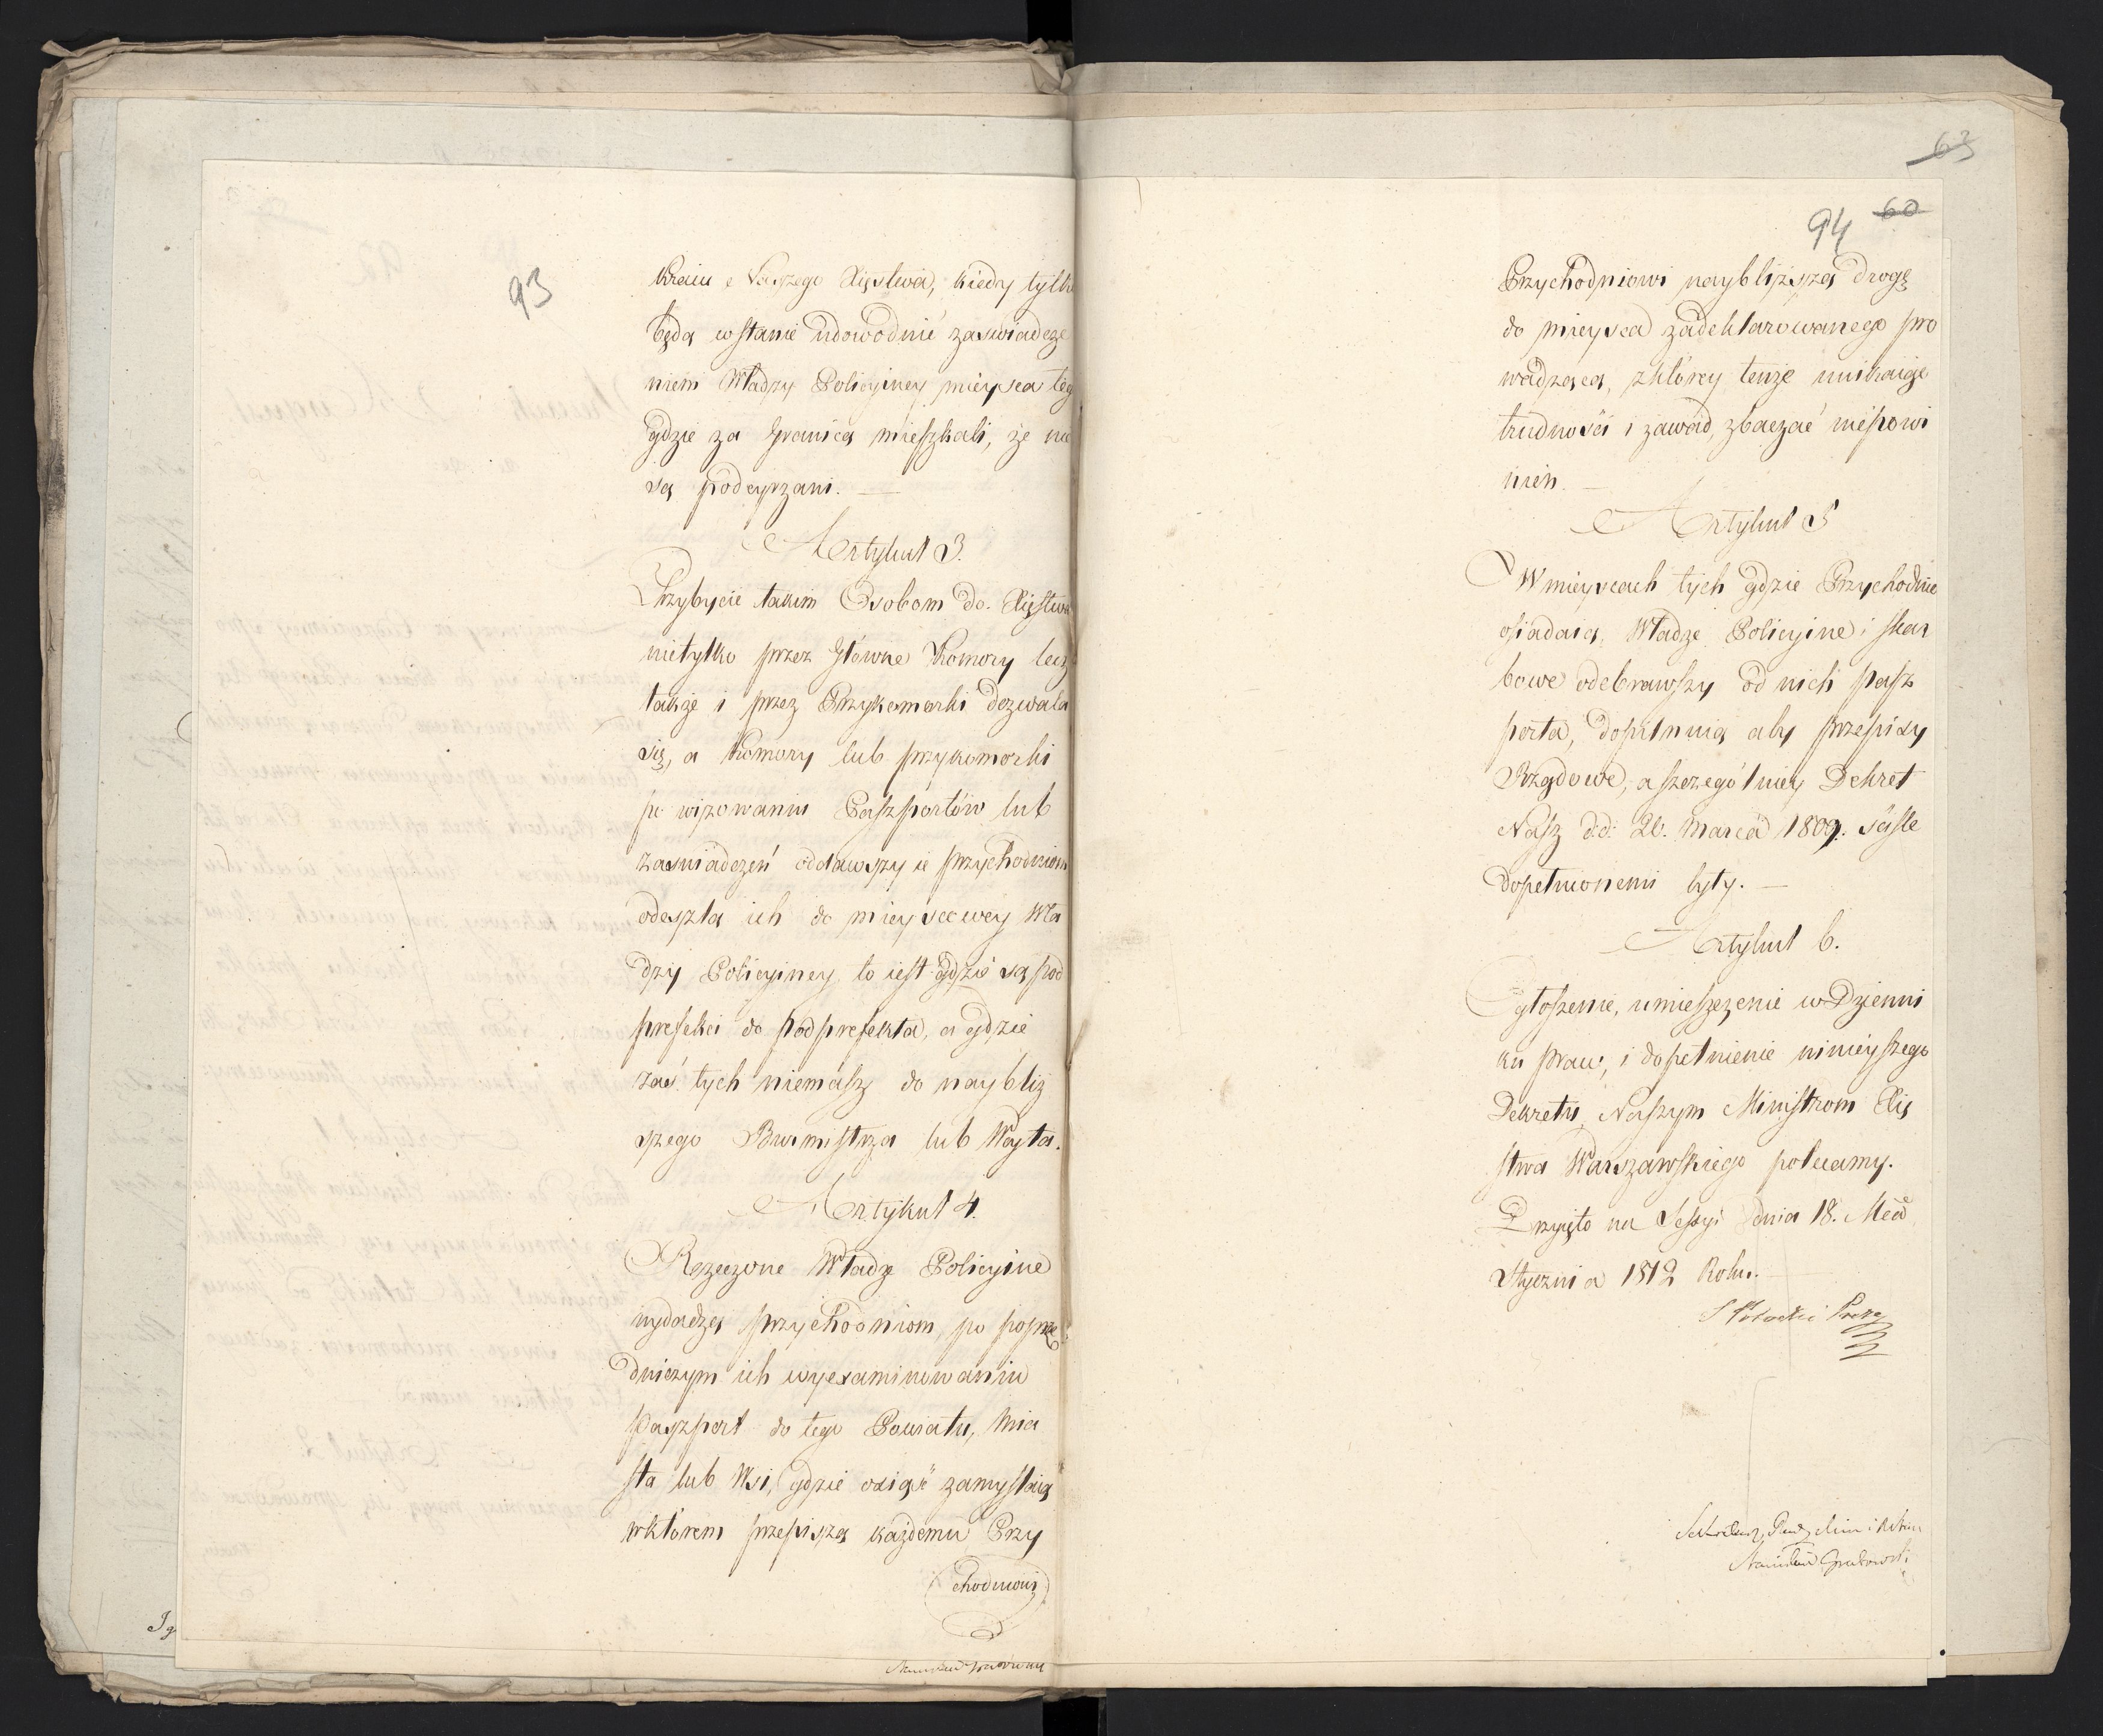 93
Kraiu Naszego Xięstwa, kiedy tylk
będą wstanie udowodnić zaswiadcze
niem Władzy Policyiney mieysca teg
gdzie za Granicą mieszkali, że nie
są podeyrzani. —
Artykuł 3.
Przybycie takim Osobom do Xięstwa
nietylko przez Główne Komory lecz
także i przez Przykomorki dozwala
się, a Komory lub przykomorki
po wizowaniu Paszportów lub
zaswiadczeń oddawszy ie przychodniom
odeszlą ich do mieyscowey Wła
dzy Policyiney to iest gdzie są pod
prefekci do podprefekta, a gdzie
zaś tych niemasz do naybliż
szego Burmistrza lub Woyta.
Artykuł 4.
Rzeczone Władze Policyine
wydadzą przychodniom, po poprze
dniczym ich wyexaminowaniu
paszport do tego Powiatu, Mia
sta lub Wsi, gdzie osiąść zamyślaią
wktórem przepiszą każdemu Przy
chodniowi
63
94 60
Przychodniowi naybliższą drogę
do mieysca zadeklarowanego pro
wadzącą, zktórey tenże unikaiąc
trudności i zawad, zbaczać niepowi
nien. —
Artykuł 5
W mieyscach tych gdzie Przychodnie
osiadaią, Władze Policyine i skar
bowe odebrawszy od nich pasz
porta, dopilnuią aby przepisy
Rządowe, a szczególniey Dekret
Nasz d.d. 20. Marca 1809. ściśle
dopełnionemi były. —
Artykuł 6.
Ogłoszenie, umieszczenie w Dzienni
ku praw, i dopełnienie ninieyszego
Dekretu, Naszym Ministrom Xię
stwa Warszawskiego polecamy.
Przyięto na Sessyi dnia 18. Mca
Stycznia 1812 Roku. —
S Potocki Prez
Sekretarz Rady Stanu i
Stanisław Grabowski